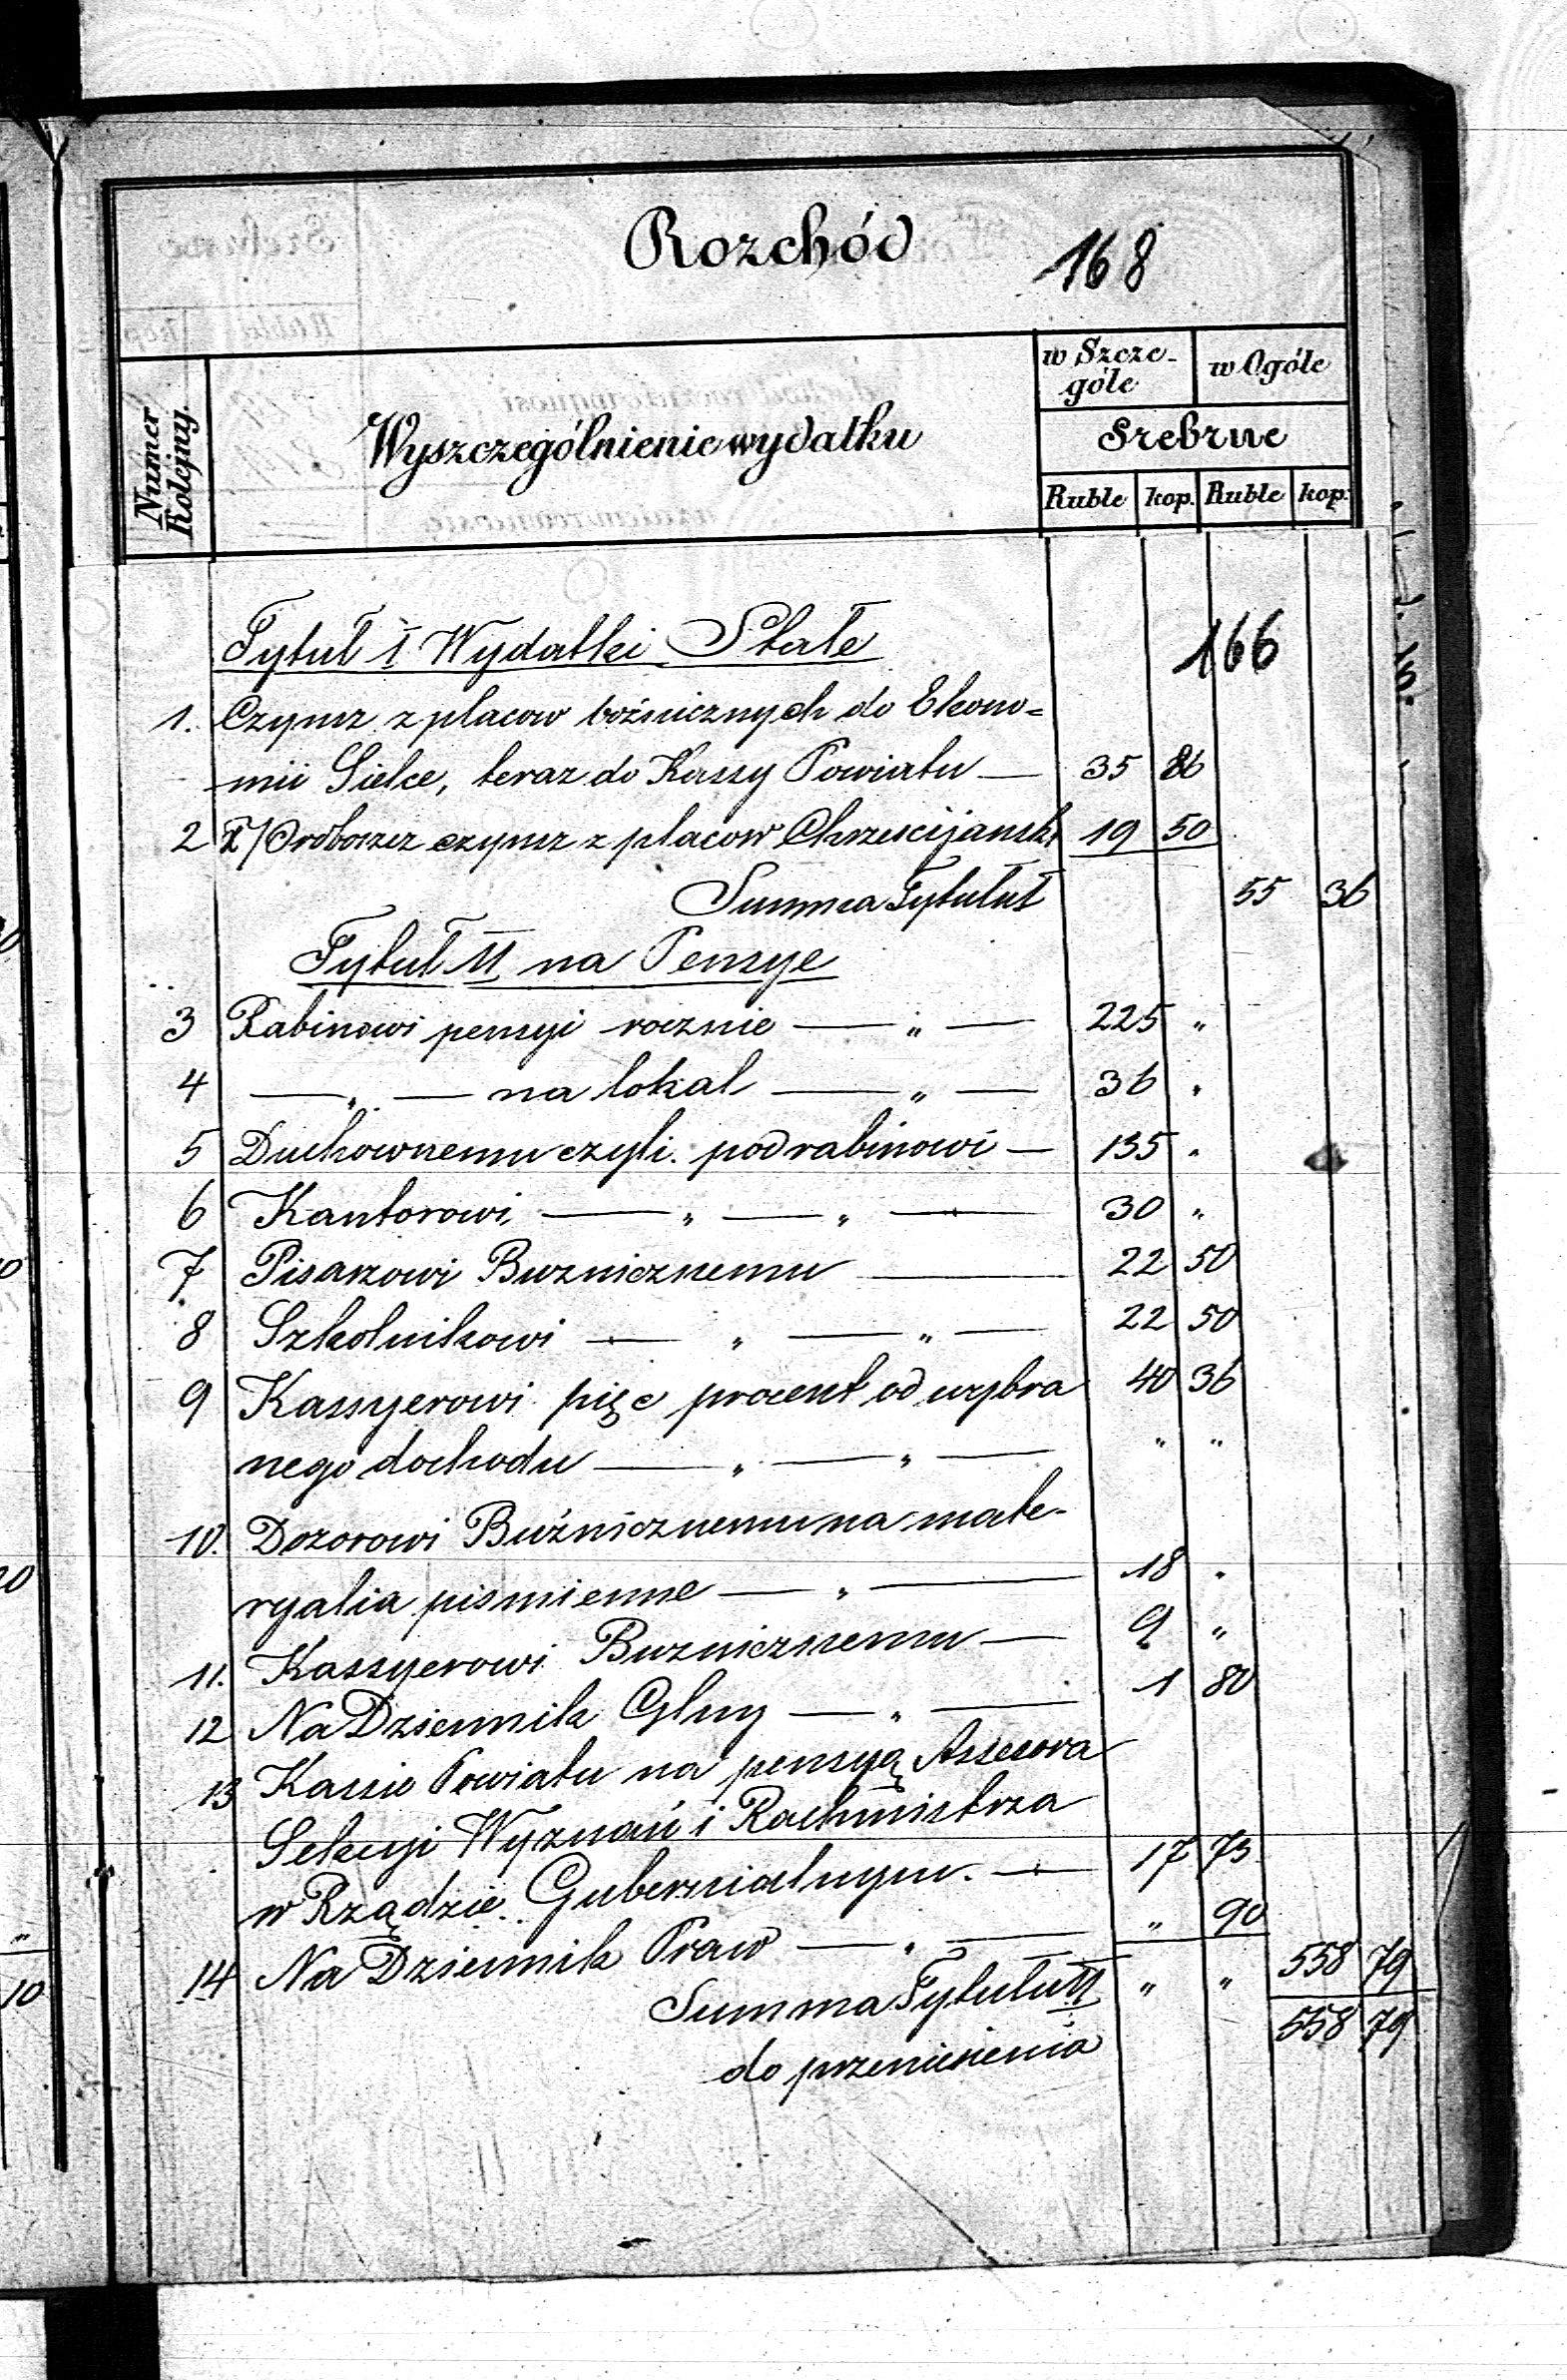 Rozchód
168
Numer Kolejny.
Wyszczególnienie wydatku
w Szcze-góle
w Ogóle
Srebrne
Ruble kop. Ruble kop.
Tytuł I Wydatki Stałe
166
1. Czynsz z placow bóźnicznych do Ekono=
mii Sielce, teraz do Kassy Powiatu — 35 86
2 czynsz z placow Chrzescijansk 19 50
Summa Tytułu I 55 36
Tytuł II na Pensye
3 Rabinowi pensyi rocznie — „ — 225 „
4 — „ — na lokal — „ — 36 „
5 Duchownemu czyli podrabinowi — 135 „
6 Kantorowi — „ — „ — 30 „
7 Pisarzowi Buznicznemu — 22 50
8 Szkolnikowi — „ — „ — 22 50
9 Kassyerowi pięc procent od uzbra 40 36
nego dochodu — „ — „ — „ „
10. Dozorowi Buźnicznemu na mate-
ryalia pismienne — „ — 18 „
11. Kassyerowi Buznicznemu — 9 „
12 Na Dziennik Glny — „ — 1 80
13 Kassie Powiatu na pensyą Assesora
Sekcyi Wyznań i Rachmistrza
w Rządzie Gubernialnym. — 17 73
14 Na Dziennik Praw — „ — „ 90
Summa Tytułu II „ „ 558 79
do przeniesienia 558 79